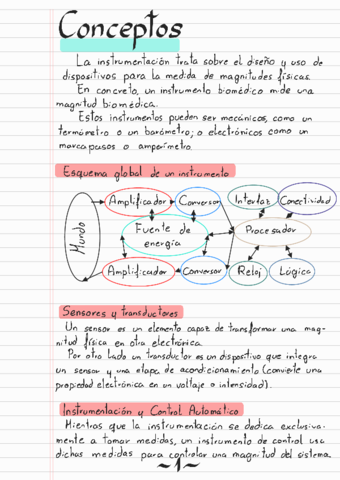 Conceptos
La instrumentación trata sobre el diseño y uso de
dispositivos para la medida de magnitudes físicas.
En concreto, un instrumento biomédico mide una
magnitud biomédica.
Estos instrumentos pueden ser mecánicos, como un
termómetro o un barómetro; o electrónicos como un
marcapasos o amperímetro.
Esquema global de un instrumento
Amplificador
Conversor
Interfaz
Conectividad
Mundo
Fuente de
energía
Procesador
Amplificador
Conversor
Reloj
Lógica
Sensores y transductores
Un sensor es un elemento capaz de transformar una mag-
nitud física en otra electrónica.
Por otro lado un transductor es un dispositivo que integra
un sensor y una etapa de acondicionamiento (convierte una
propiedad electrónica en un voltaje o intensidad).
Instrumentación y Control Automático
Mientras que la instrumentación se dedica exclusiva-
mente a tomar medidas, un instrumento de control usa
dichas medidas para controlar una magnitud del sistema.
~1~